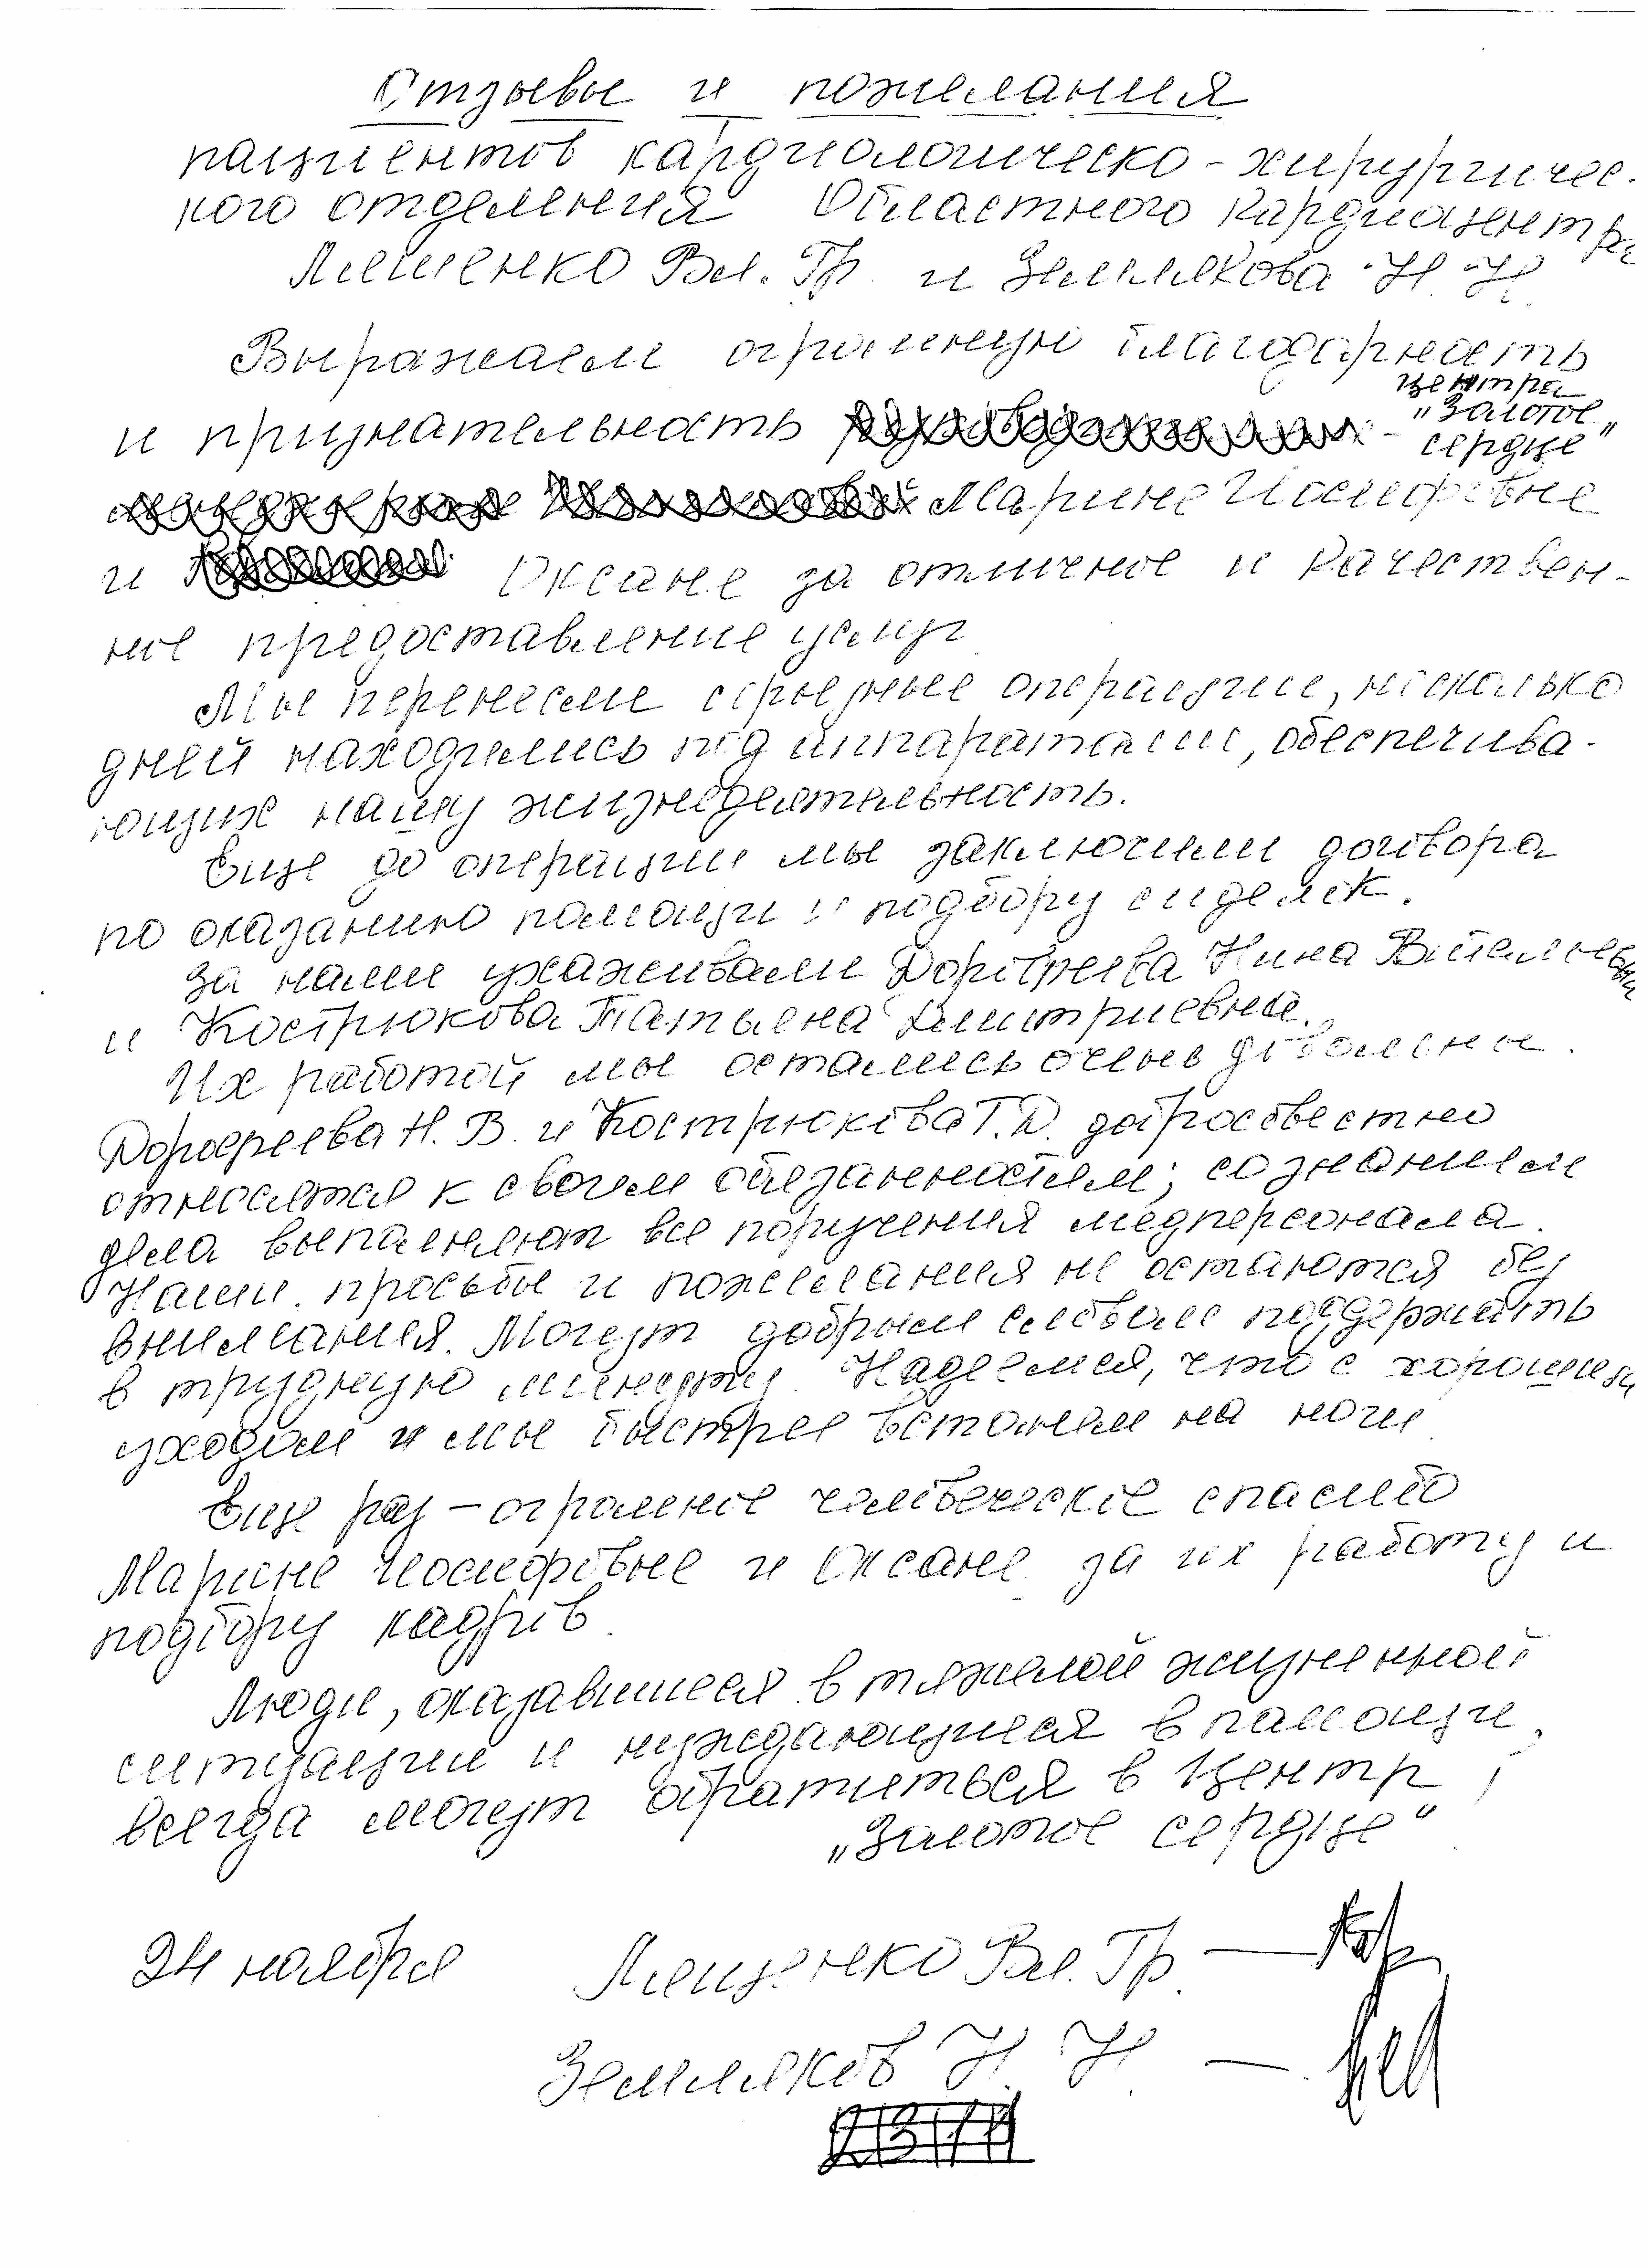 Отзывы и пожелания
пациентов кардиологическо-хирургичес-
кого отделения Областного Кардиоцентра
Лященко Вл. Гр. и Землякова Н. Н.
Выражаем огромную благодарность
и признательность центра
"Золотое
сердце"
Марине Иосифовне
и Оксане за отличное и качествен-
ное предоставление услуг
Мы перенесли серьезные операции, несколько
дней находились под аппаратами, обеспечива-
ющих нашу жизнедеятельность.
Еще до операции мы заключили договора
по оказанию помощи и подбору сиделок.
За нами ухаживали Дорофеева Нина Витальевна
и Кострюкова Татьяна Дмитриевна.
Их работой мы остались очень довольные.
Дорофеева Н. В. и Кострюкова Т. Д. добросовестно
относятся к своим обязанностям; со знанием
дела выполняют все поручения медперсонала.
Наши просьбы и пожелания не остаются без
внимания. Могут добрым словом поддержать
в трудную минуту. Надеемся, что с хорошим
уходом и мы быстрее встанем на ноги
Еще раз - огромное человеческое спасибо
Марине Иосифовне и Оксане за их работу и
подбору кадров.
Люди, оказавшиеся в тяжелой жизненной
ситуации и нуждающиеся в помощи,
всегда могут обратиться в Центр
"Золотое сердце"
24 ноября Лященко Вл. Гр. —
Земляков Н. Н. —